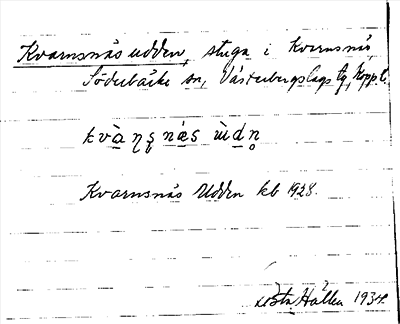 Kvarnsnäs udden, stuga i Kvarnsnäs,
Söderbärke sn, Västerbergslags tg, Kopp. l.
kvàṇṣnæs ùdṇ
Kvarnsnäs Udden kb 1928.
Gösta Hallen 1934.